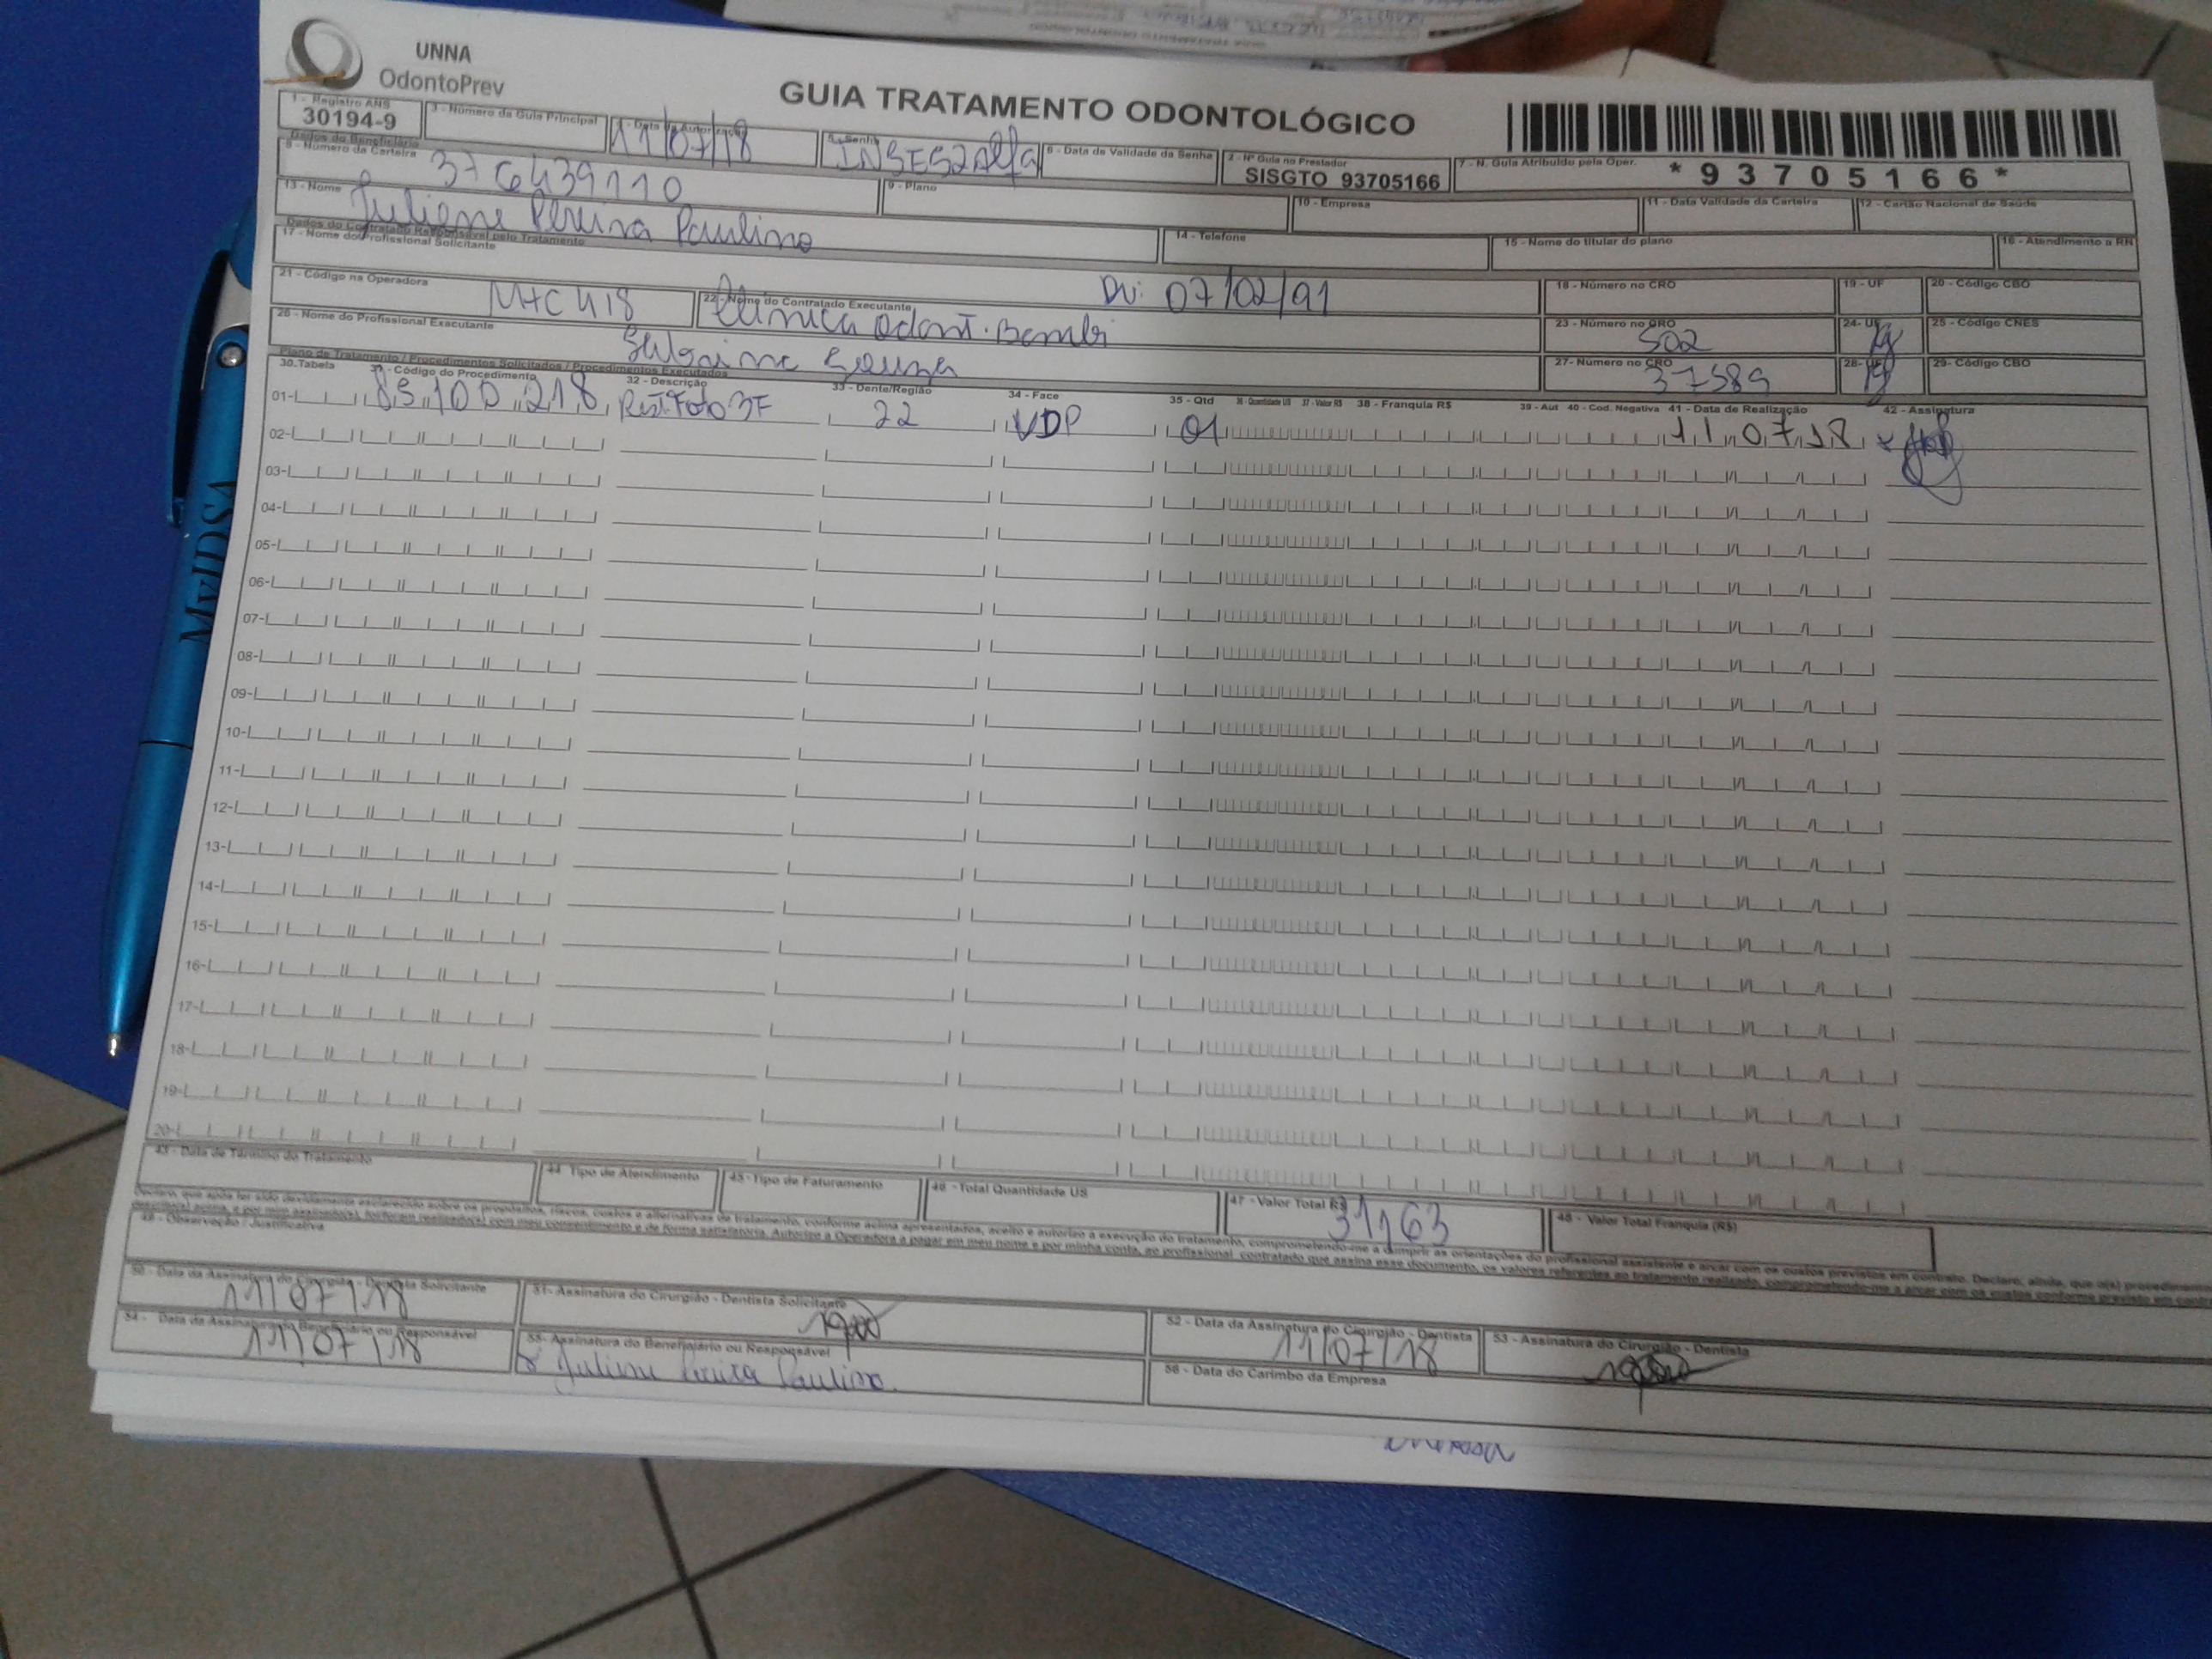 UNNA
OdontoPrev
GUIA TRATAMENTO ODONTOLÓGICO
1 - Registro ANS
30194-9
3 - Número da Guia Principal
4 - Data da Autorização
11/07/18
5 - Senha
6 - Data de Validade da Senha
2 - Nº Guia no Prestador
SISGTO 93705166
7 - N. Guia Atribuído pela Oper.
*93705166*
Dados do Beneficiário
8 - Número da Carteira
376439110
9 - Plano
10 - Empresa
11 - Data Validade da Carteira
12 - Cartão Nacional de Saúde
13 - Nome
Juliene Pereira Paulino
14 - Telefone
15 - Nome do titular do plano
16 - Atendimento a RN
Dados do Contratado Responsável pelo Tratamento
17 - Nome do Profissional Solicitante
DN: 07/02/91
18 - Número no CRO
19 - UF
20 - Código CBO
21 - Código na Operadora
22 - Nome do Contratado Executante
Clínica Odont. Bambi
23 - Número no CRO
502
24 - UF
25 - Código CNES
26 - Nome do Profissional Executante
Souza
27 - Número no CRO
37589
28 - UF
29 - Código CBO
Plano de Tratamento / Procedimentos Solicitados / Procedimentos Executados
30. Tabela
31 - Código do Procedimento
32 - Descrição
33 - Dente/Região
34 - Face
35 - Qtd
36 - Quantidade US
37 - Valor R$
38 - Franquia R$
39 - Aut
40 - Cod. Negativa
41 - Data de Realização
42 - Assinatura
01- 85 100 218 Rest. Foto 3F 22 VDP 01 11 07 18
02-
03-
04-
05-
06-
07-
08-
09-
10-
11-
12-
13-
14-
15-
16-
17-
18-
19-
20-
43 - Data de Término do Tratamento
44 - Tipo de Atendimento
45 - Tipo de Faturamento
46 - Total Quantidade US
47 - Valor Total R$
31,63
48 - Valor Total Franquia (R$)
Declaro, que após ter sido devidamente esclarecido sobre os propósitos, riscos, custos e alternativas de tratamento, conforme acima apresentados, aceito e autorizo a execução do tratamento, comprometendo-me a cumprir as orientações do profissional assistente e arcar com os custos previstos em contrato. Declaro, ainda, que o(s)
descrito(s) acima, e por mim assinado(s), foi/foram realizado(s) com meu consentimento e de forma satisfatória. Autorizo a Operadora a pagar em meu nome e por minha conta, ao profissional contratado que assina esse documento, os valores referentes ao tratamento realizado, comprometendo-me a arcar com os custos conforme previsto em
49 - Observação / Justificativa
50 - Data da Assinatura do Cirurgião - Dentista Solicitante
11/07/18
51 - Assinatura do Cirurgião - Dentista Solicitante
52 - Data da Assinatura do Cirurgião - Dentista
11/07/18
53 - Assinatura do Cirurgião - Dentista
54 - Data da Assinatura do Beneficiário ou Responsável
11/07/18
55 - Assinatura do Beneficiário ou Responsável
Juliene Pereira Paulino.
56 - Data do Carimbo da Empresa
MyDSA